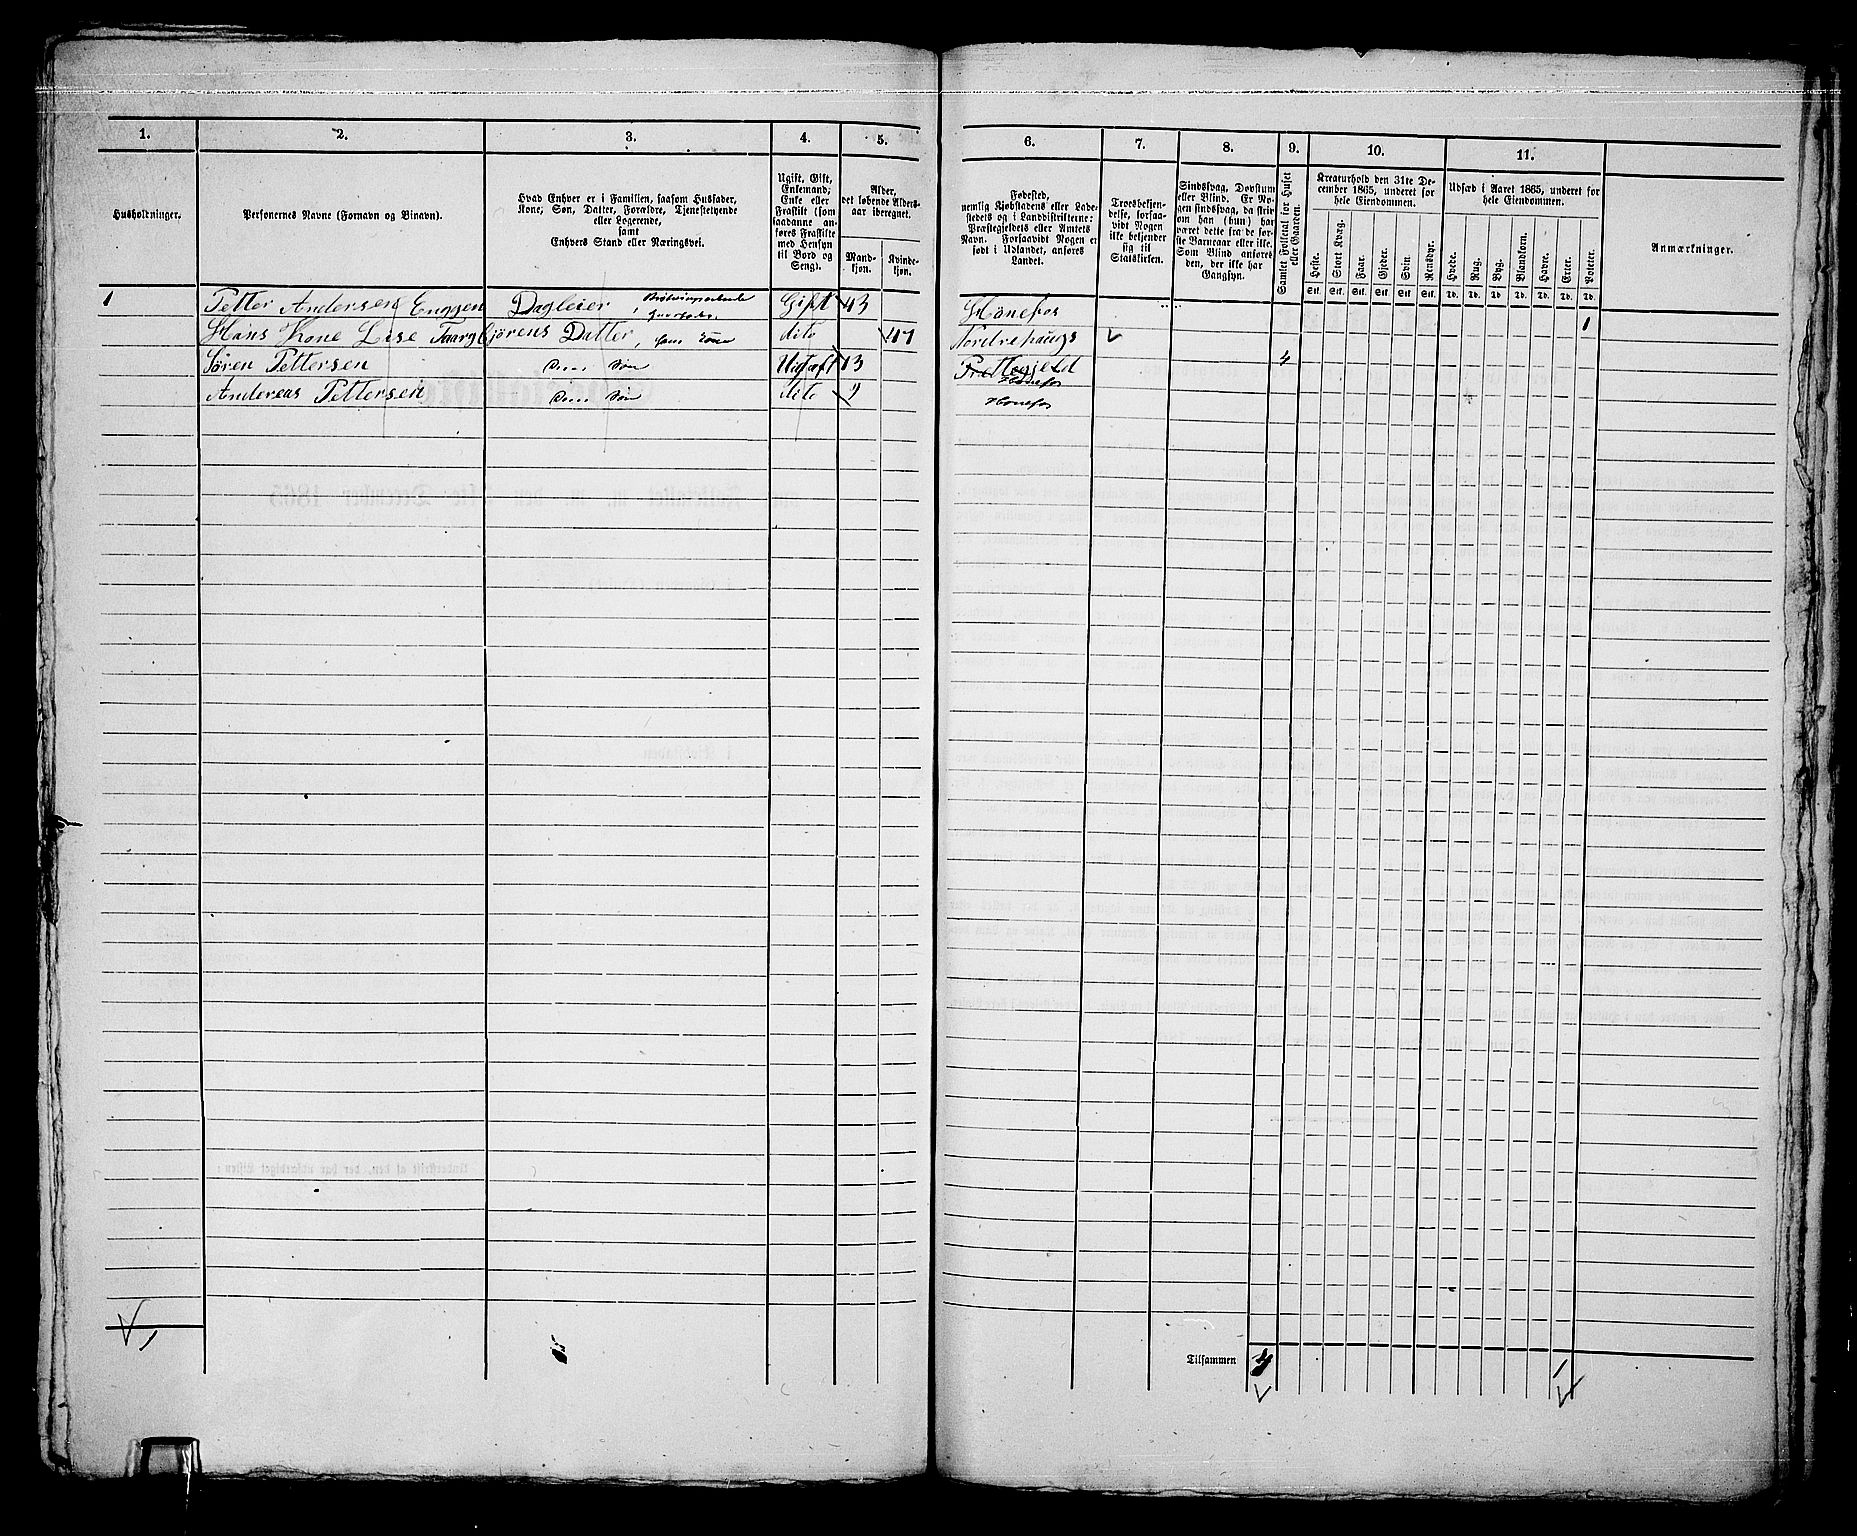 1.
2.
3.
4.
5.
Husholdninger.
Personernes Navne (Fornavn og Binavn).
Hvad Enhver er i Familien, saasom Husfader,
Kone, Søn, Datter, Forældre, Tjenestetyende
eller Logerende,
samt
Enhvers Stand eller Næringsvei.
Ugift, Gift,
Enkemand,
Enke eller
Fraskilt (som
saadanne an-
føres Fraskilte
med Hensyn
til Bord og
Seng).
Alder,
det løbende Alders-
aar iberegnet.
Mand-
kjøn.
Kvinde-
kjøn.
1 Petter Andersen Enggen Dagleier, Gift 43
Hans Kone Lise Taargbjørens Datter, hans Kone dito 47
Søren Pettersen Deres Søn Ugift 13
Andereas Pettersen Deres Søn dito 9
6.
7.
8.
9.
10.
11.
Fødested,
nemlig Kjøbstadens eller Lade-
stedets og i Landdistrikterne:
Præstegjeldets eller Amtets
Navn. Forsaavidt Nogen er
født i Udlandet, anføres
Landet.
Troesbekjen-
delse, forsaa-
vidt Nogen
ikke bekjender
sig til
Statskirken.
Sindssvag, Døvstum
eller Blind. Er No-
gen sindssvag, da skriv
om han (hun) har
været dette fra de før-
ste Barneaar eller ikke.
Som Blind anføres
den, der ikke har
Gangsyn.
Samlet Folketal for Huset
eller Gaarden.
Kreaturhold den 31te De-
cember 1865, underet for
hele Eiendommen.
Heste. Stort Kvæg. Faar. Gjeder. Svin. Rensdyr.
Stk. Stk. Stk. Stk. Stk. Stk.
Udsæd i Aaret 1865, underet for
hele Eiendommen.
Hvede. Rug. Byg. Blandkorn. Havre. Erter. Poteter.
Td. Td. Td. Td. Td. Td. Td.
Anmærkninger.
Hønefos
Nordrehaugs 1
4
Hønefos
Hønefos
Tilsammen 4 1